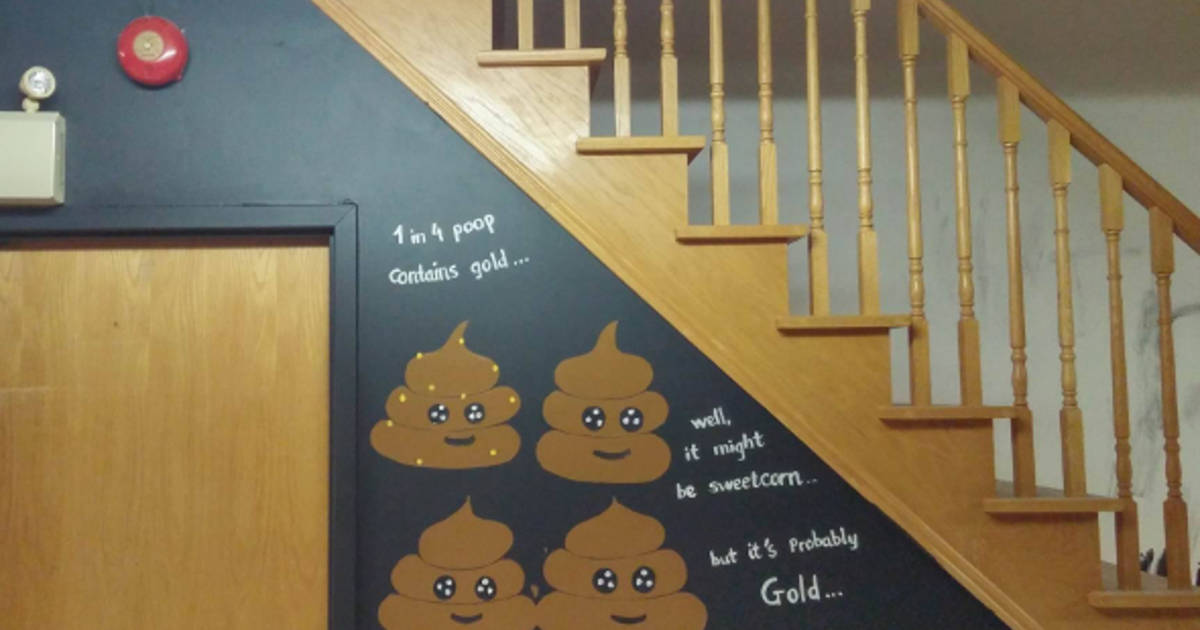 1 in 4 poop
contains gold...
well,
it might
be sweetcorn..
but it's Probably
Gold...